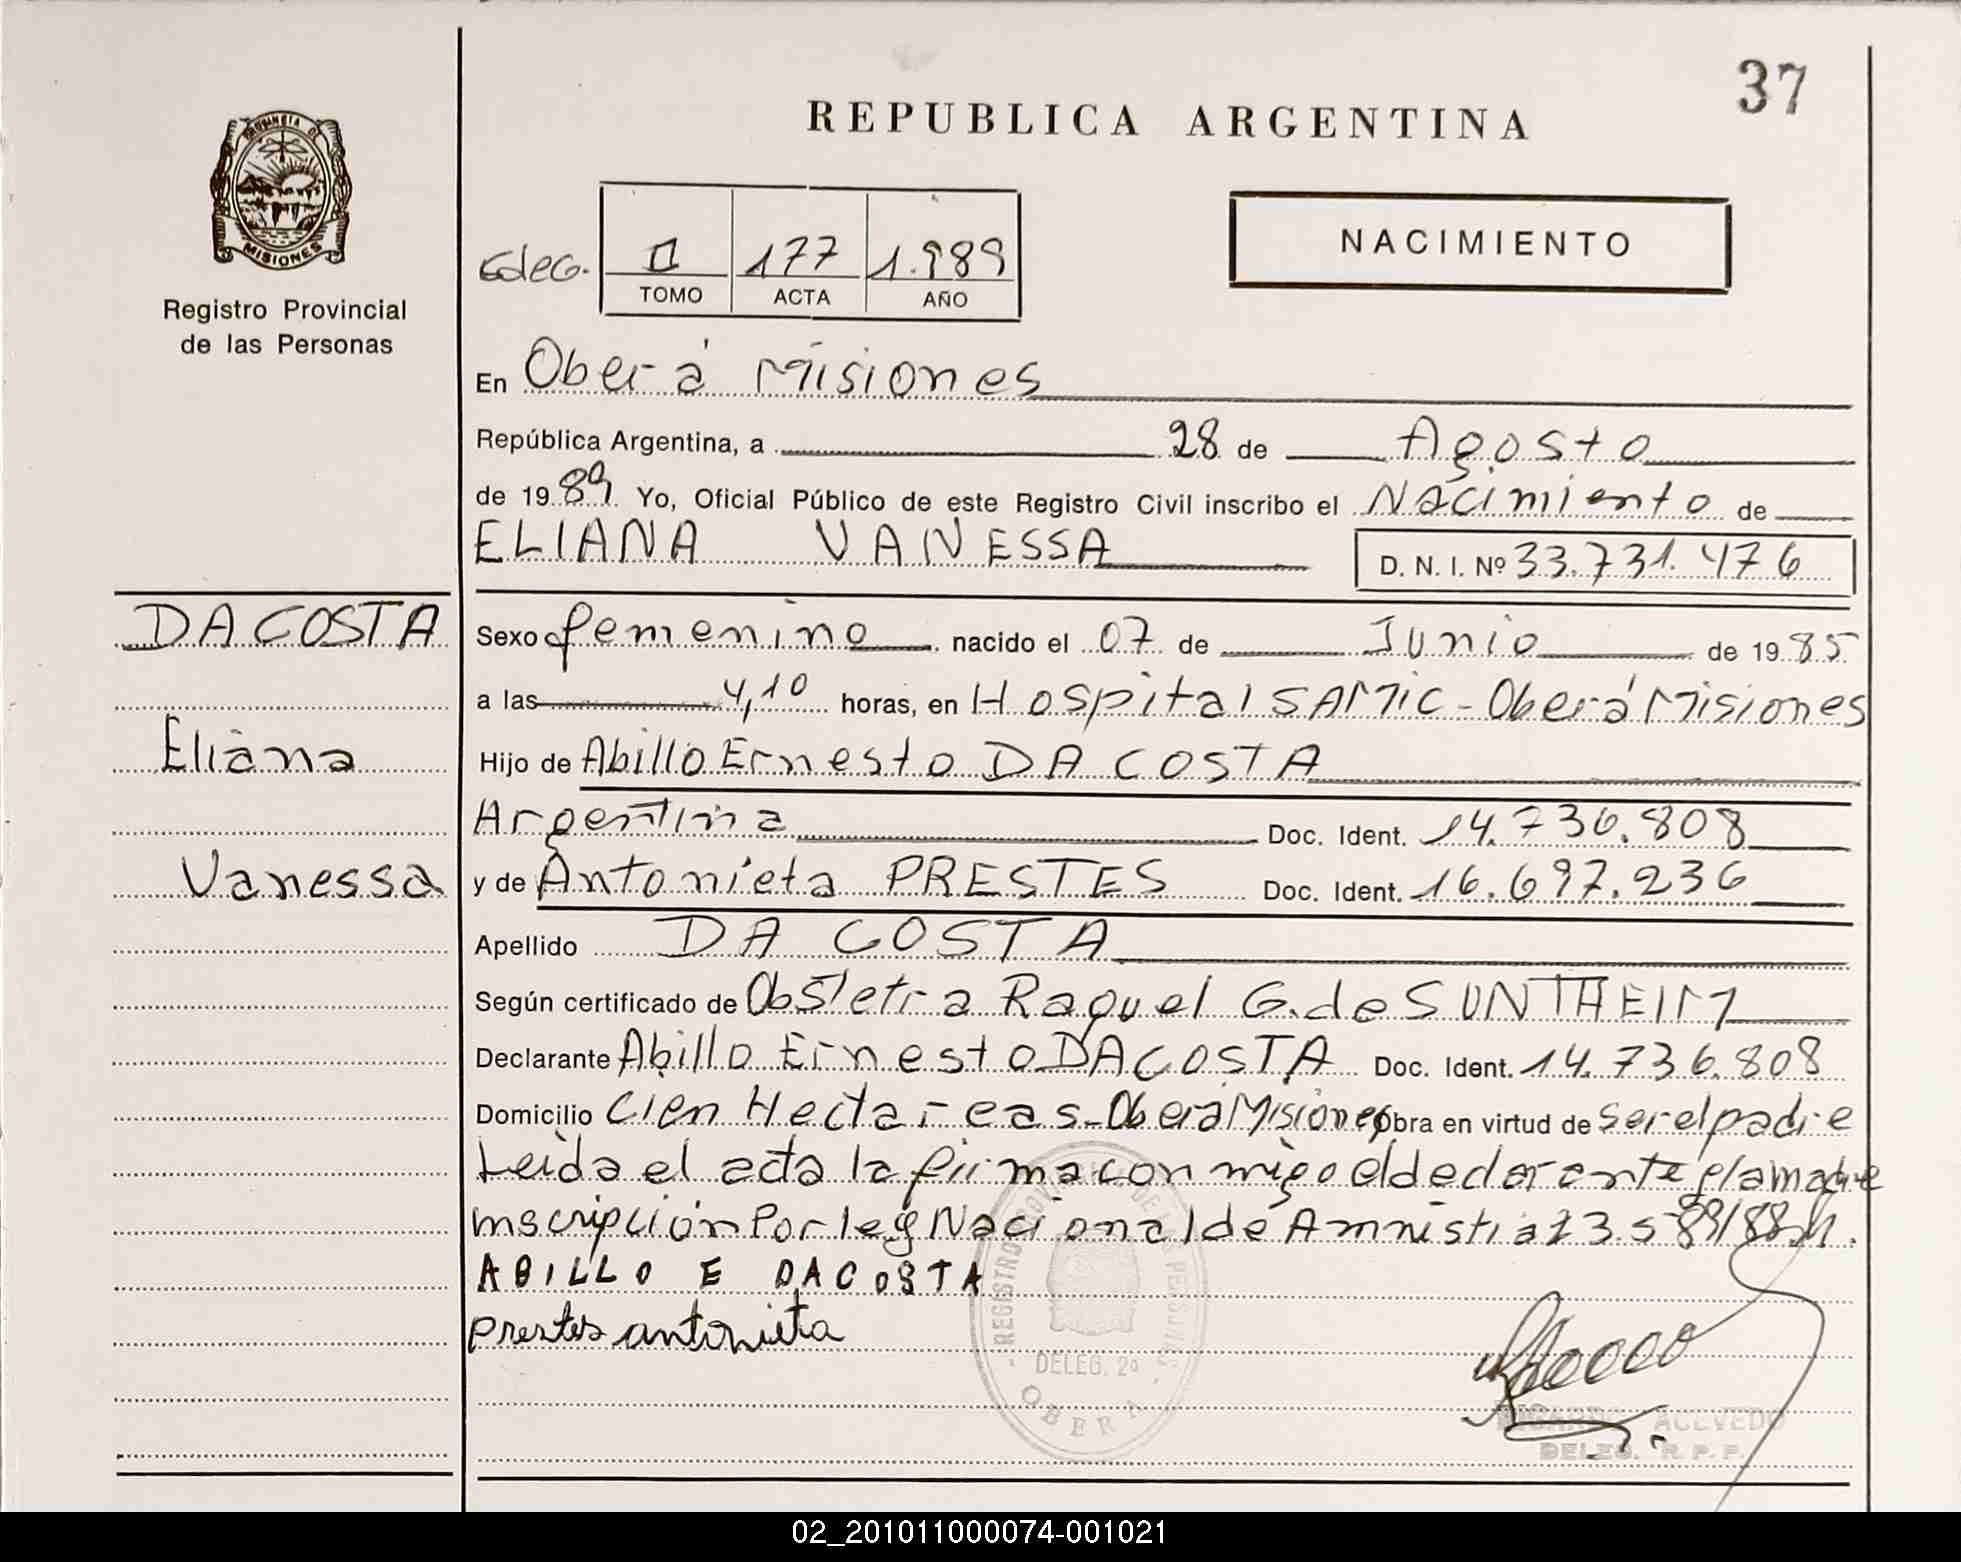 37
REPUBLICA ARGENTINA
PROVINCIA DE
MISIONES
Registro Provincial
de las Personas
NACIMIENTO
177 1.989
TOMO ACTA AÑO
En Oberá Misiones
República Argentina, a 28 de Agosto
de 1989 Yo, Oficial Público de este Registro Civil inscribo el Nacimiento de
ELIANA VANESSA D. N. I. Nº 33.731.476
DA COSTA
Eliana
Vanessa
Sexo femenino nacido el 07 de Junio de 1985
a las 4,10 horas, en Hospital SAMIC - Oberá Misiones
Hijo de Abillo Ernesto DA COSTA
Argentina Doc. Ident. 14.736.808
y de Antonieta PRESTES Doc. Ident. 16.697.236
Apellido DA COSTA
Según certificado de Obstetra Raquel G. de SUNTHEIM
Declarante Abillo Ernesto DA COSTA Doc. Ident. 14.736.808
Domicilio Cien Hectareas - Oberá Misiones Obra en virtud de ser el padre
Leida el acta la firma conmigo el declarante y la madre
inscripción Por ley Nacional de Amnistia 23.5
ABILLO E DACOSTA
Prestes antonieta
REGISTRO PROVINCIAL DE LAS PERSONAS
DELEG. 2ª
OBERA
RICARDO ACEVEDO
DELEG. R. P. P.
02_201011000074-001021